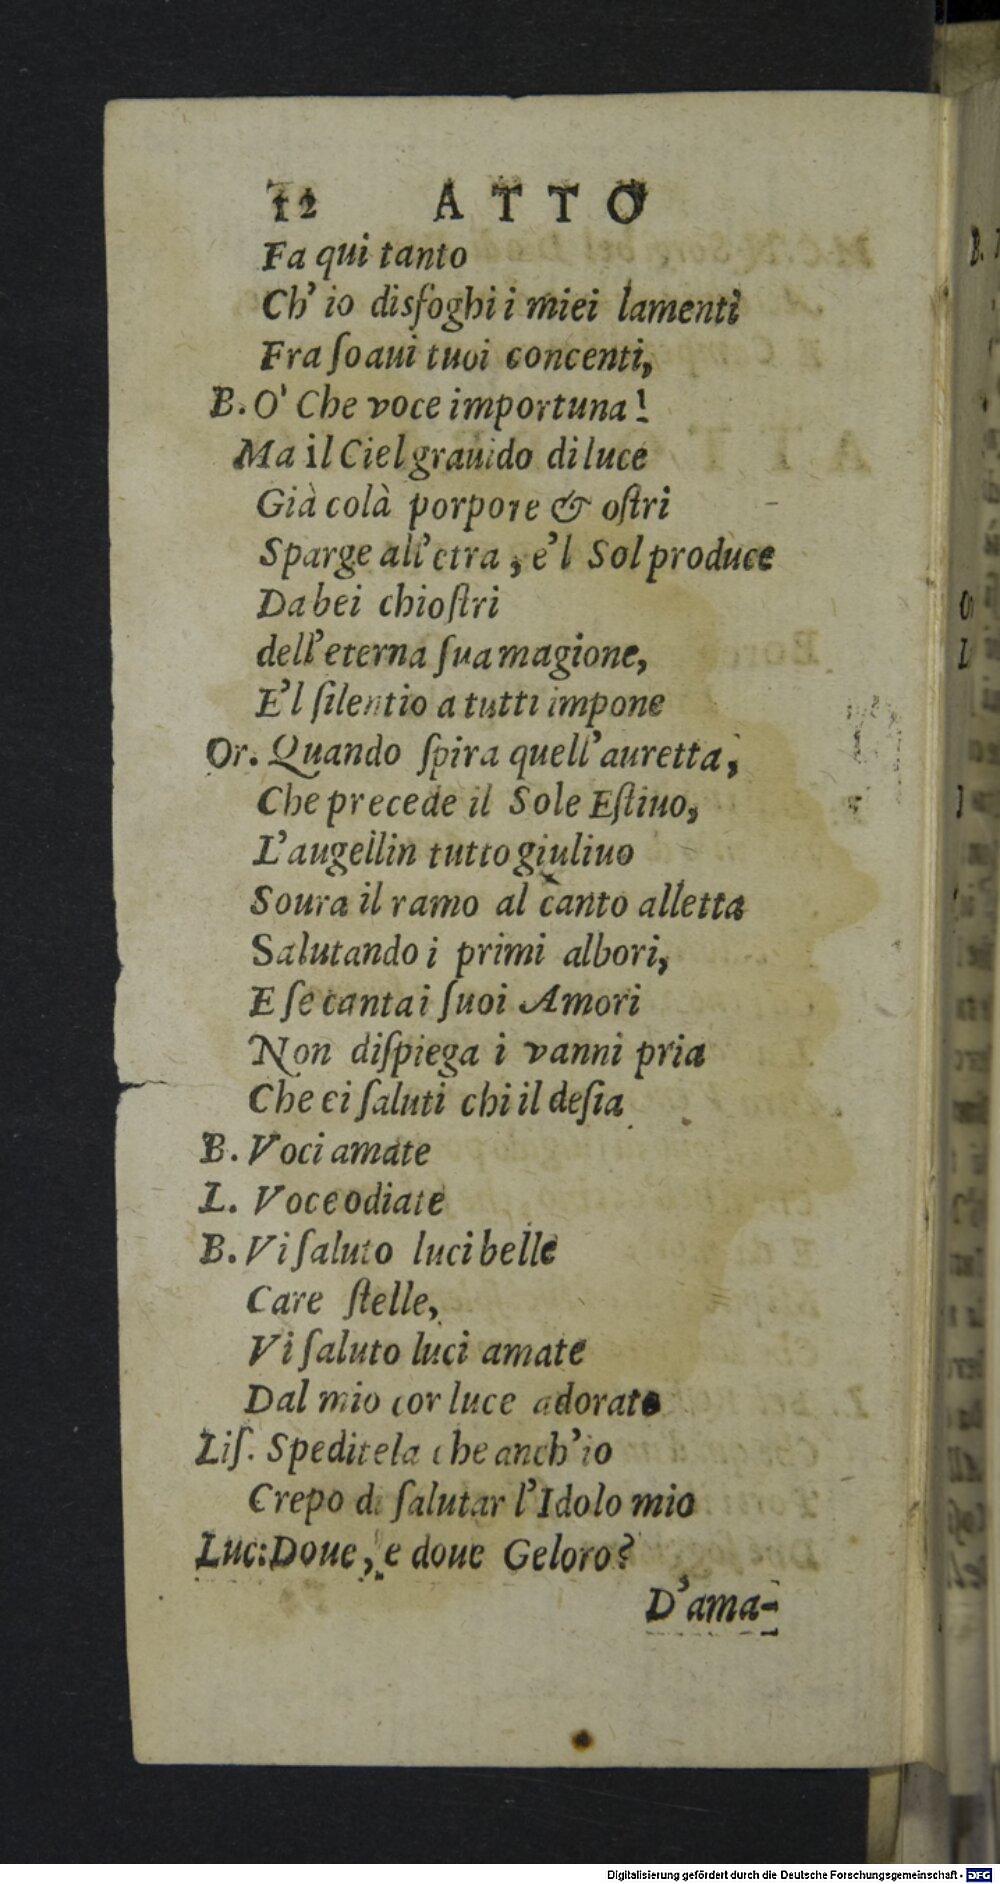 12 ATTO
Fa qui tanto
Ch' io disfoghi i miei lamenti
Fra ſoaui tuoi concenti,
B. O' Che voce importuna!
Ma il Ciel grauido di luce
Già colà porpore & oſtri
Sparge all'etra, e'l Sol produce
Da bei chioſtri
dell'eterna ſua magione,
E'l ſilentio a tutti impone
Or. Quando ſpira quell'auretta,
Che precede il Sole Eſtiuo,
L'augellin tutto giuliuo
Soura il ramo al canto alletta
Salutando i primi albori,
E ſe canta i ſuoi Amori
Non diſpiega i vanni pria
Che ei ſaluti chi il deſia
B. Voci amate
L. Voce odiate
B. Vi ſaluto luci belle
Care ſtelle,
Vi ſaluto luci amate
Dal mio cor luce adorate
Liſ. Speditela che anch'io
Crepo di ſalutar l'Idolo mio
Luc: Doue, e doue Geloro?
D'ama-
Digitalisierung gefördert durch die Deutsche Forschungsgemeinschaft - DFG